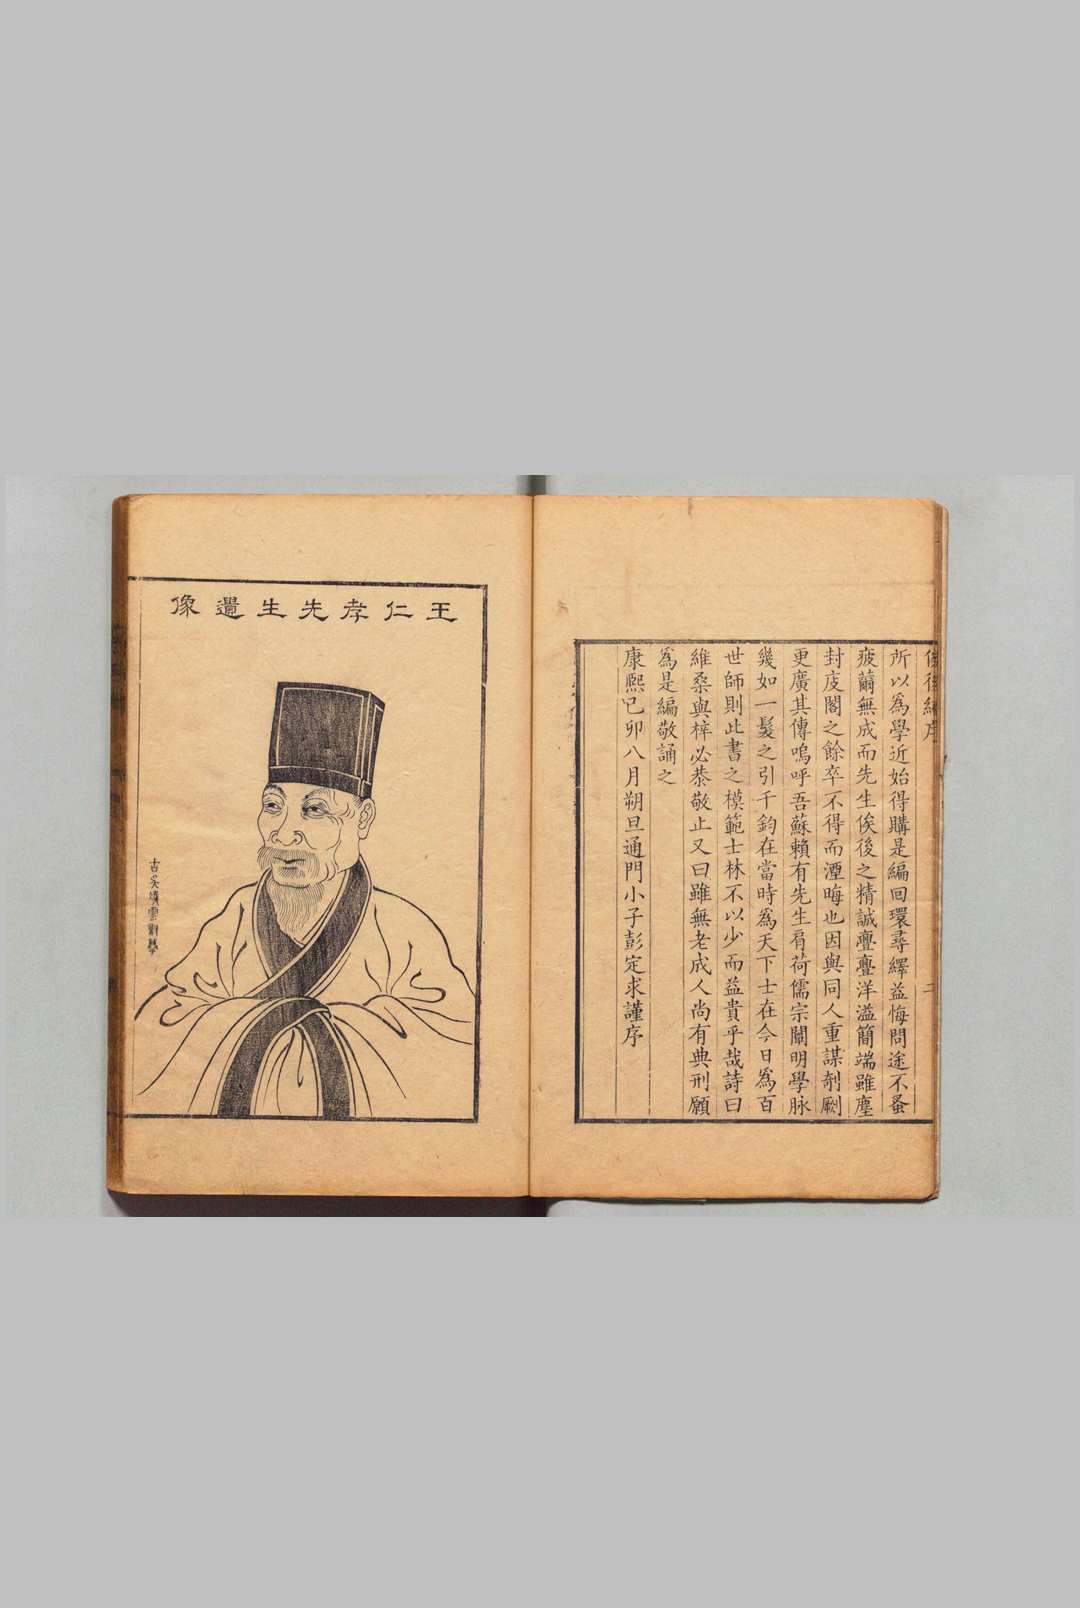 俟後編序
二
所以為學近始得購是編回環尋繹益悔問途不蚤
疲薾無成而先生俟後之精誠亹亹洋溢簡端雖塵
封庋閣之餘卒不得而湮晦也因與同人重謀剞劂
更廣其傳嗚呼吾蘇賴有先生肩荷儒宗闡明學脉
幾如一髮之引千鈞在當時為天下士在今日為百
世師則此書之模範士林不以少而益貴乎哉詩曰
維桑與梓必恭敬止又曰雖無老成人尚有典刑願
為是編敬誦之
康熙己卯八月朔旦通門小子彭定求謹序
王仁孝先生遺像